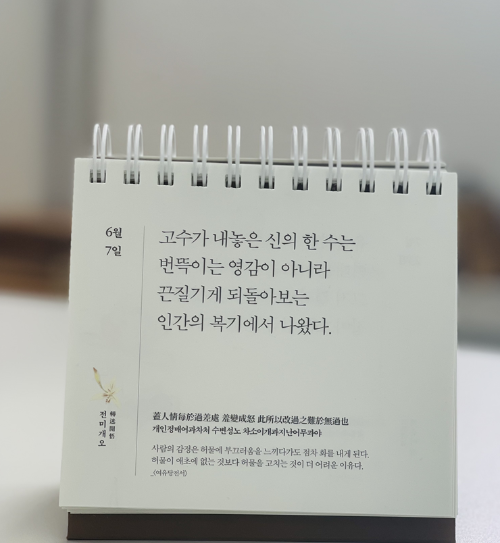 6월
7일
고수가 내놓은 신의 한 수는
번뜩이는 영감이 아니라
끈질기게 되돌아보는
인간의 복기에서 나왔다.
轉迷開悟
전미개오
蓋人情每於過差處 羞變成怒 此所以改過之難於無過也
개인정매어과차처 수변성노 차소이개과지난어무과야
사람의 감정은 허물에 부끄러움을 느끼다가도 점차 화를 내게 된다.
허물이 애초에 없는 것보다 허물을 고치는 것이 더 어려운 이유다.
_《여유당전서》